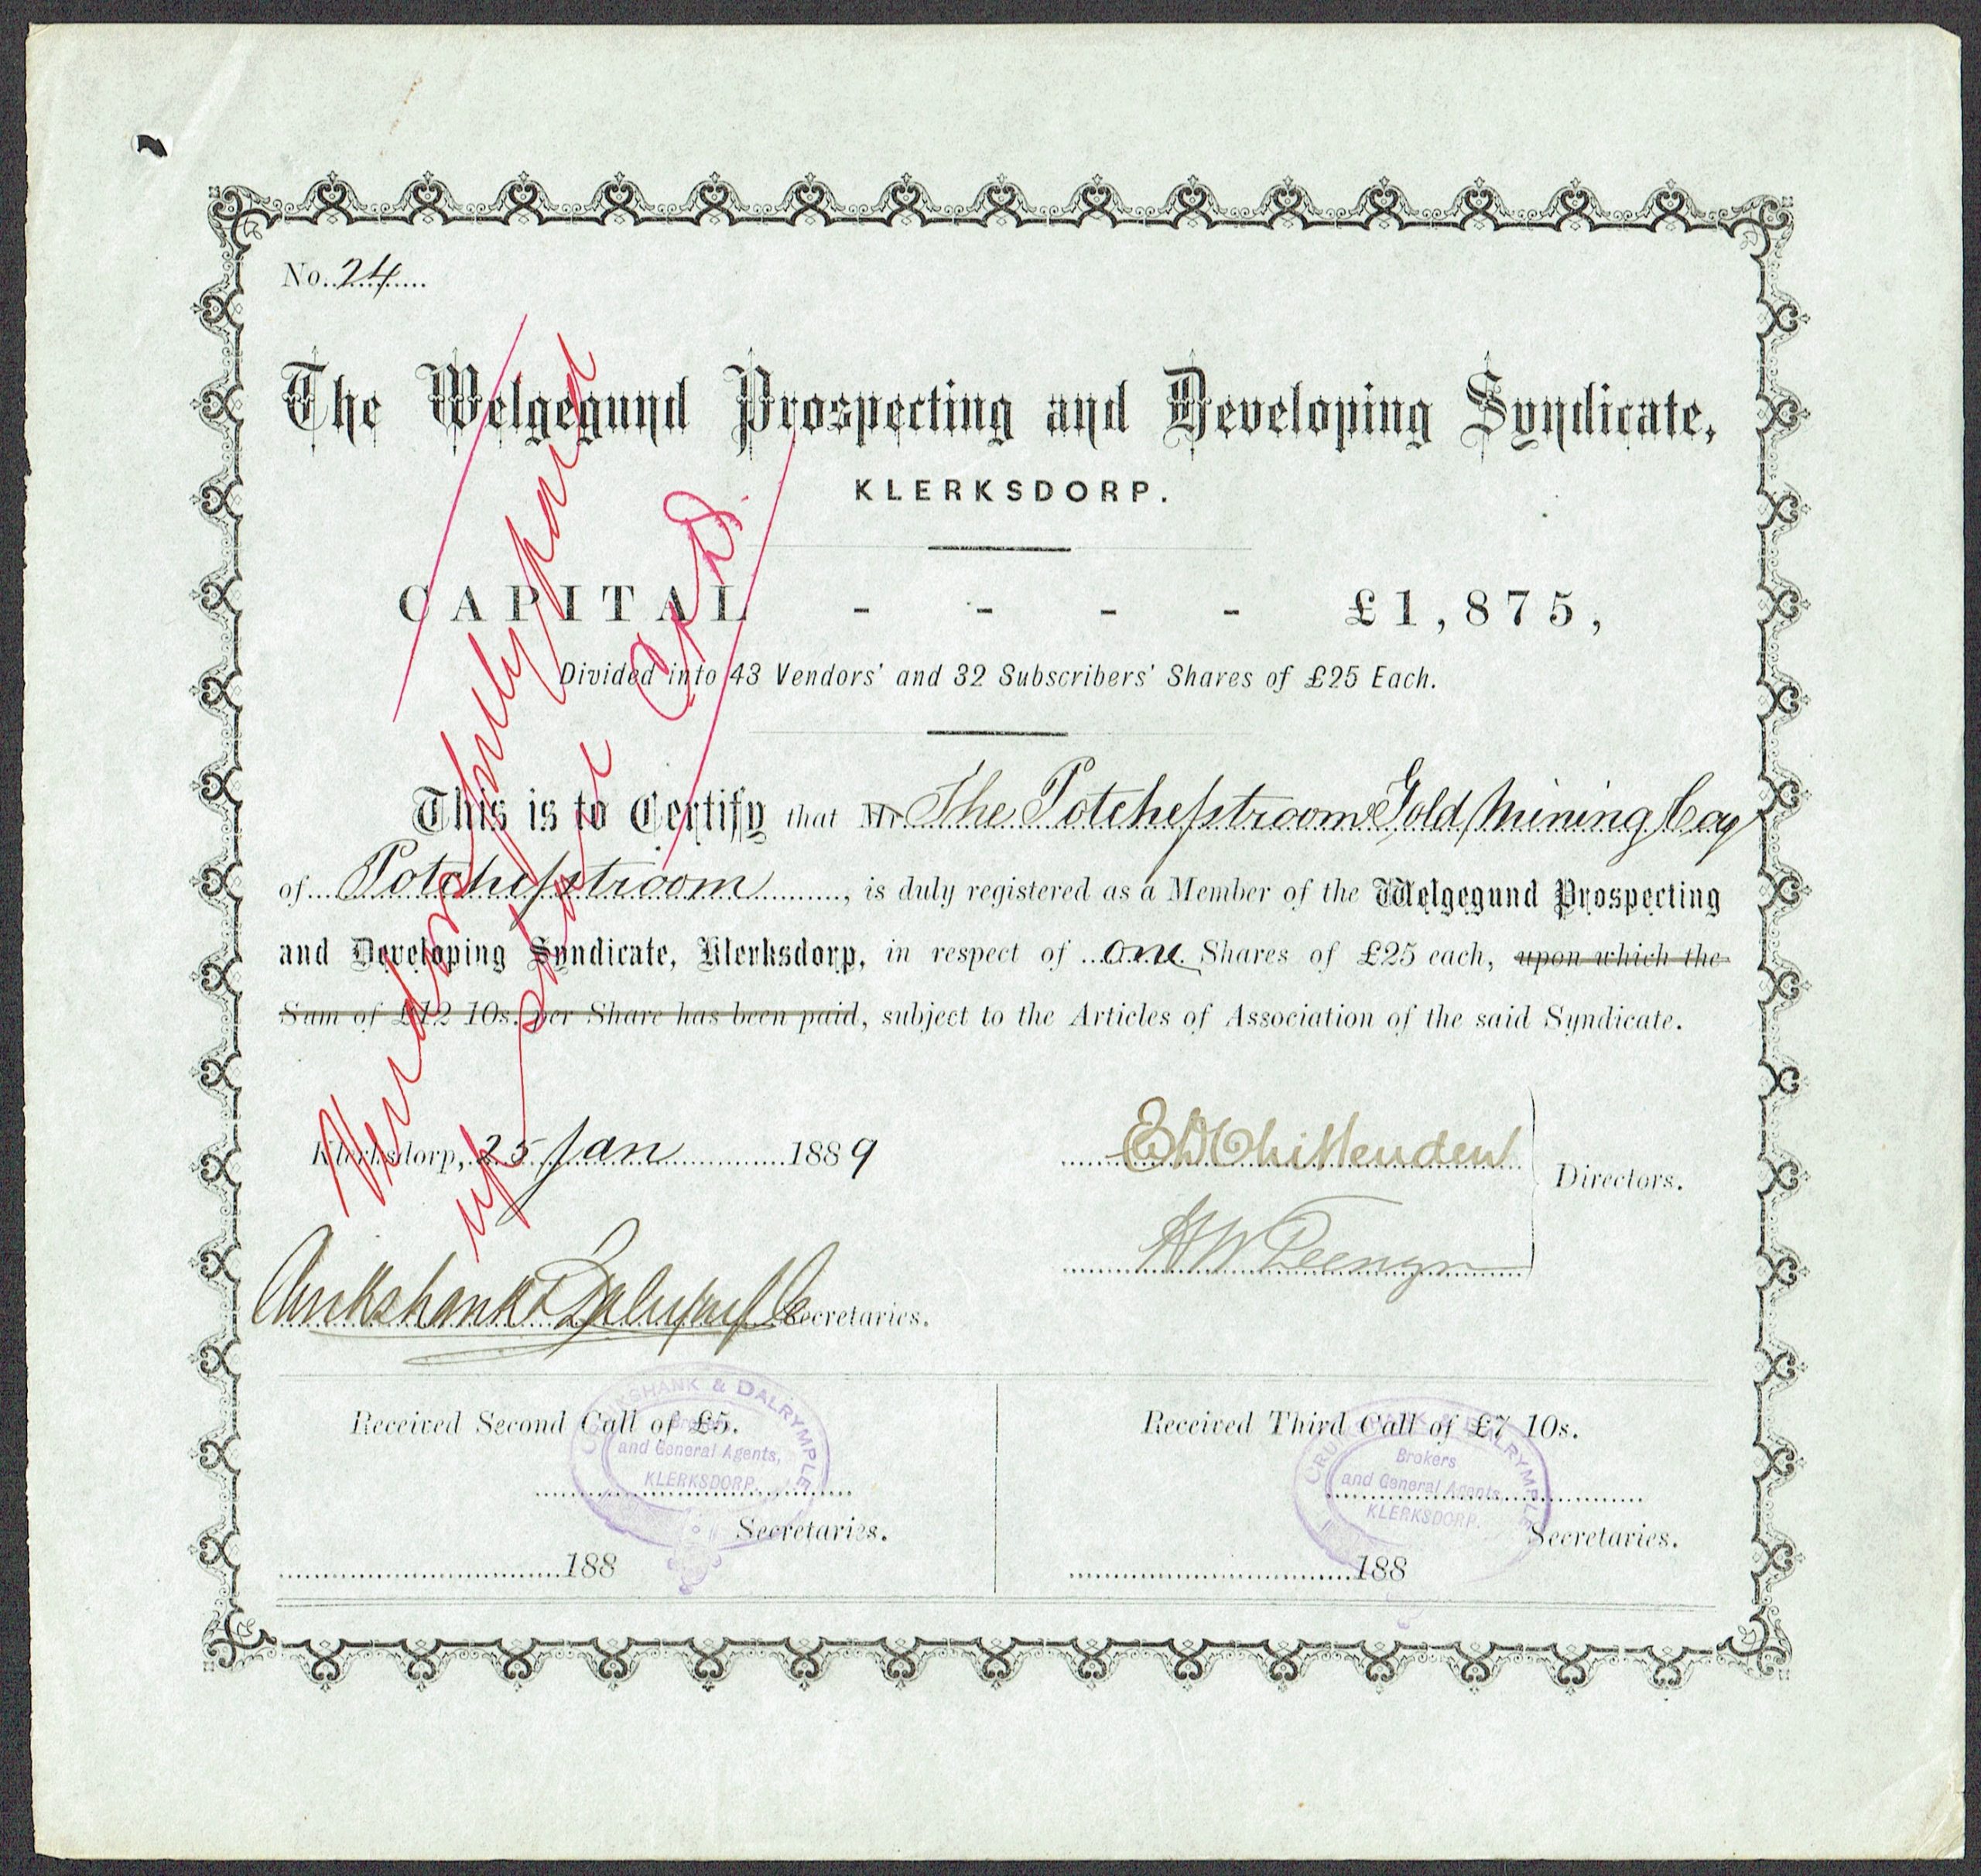 No. 24
The Welgegund Prospecting and Developing Syndicate,
KLERKSDORP.
CAPITAL - - - - £1,875,
Divided into 43 Vendors' and 32 Subscribers' Shares of £25 Each.
This is to Certify that Mr. The Potchefstroom Gold Mining Coy
of Potchefstroom, is duly registered as a Member of the Welgegund Prospecting
and Developing Syndicate, Klerksdorp, in respect of one Shares of £25 each, upon which the
Sum of £12 10s. per Share has been paid, subject to the Articles of Association of the said Syndicate.
Vendors fully paid
up share C & D.
Klerksdorp, 25 Jan 1889
E D Chittenden
Directors.
H W
Cruikshank & Dalrymple Secretaries.
Received Second Call of £5.
CRUIKSHANK & DALRYMPLE
Brokers
and General Agents,
KLERKSDORP.
Secretaries.
188
Received Third Call of £7 10s.
CRUIKSHANK & DALRYMPLE
Brokers
and General Agents
KLERKSDORP.
Secretaries.
188